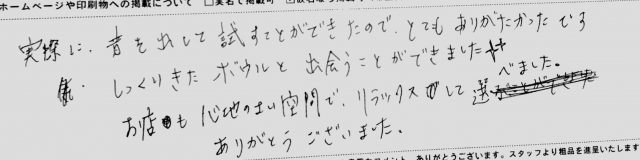 ホームページや印刷物への掲載について □実名で掲載可
実際に、音を出して試すことができたので、とてもありがたかったです
しっくりきたボウルと出会うことができました
お店も心地のよい空間で、リラックスして選べました。
ありがとうございました。
ありがとうございます。スタッフより粗品を進呈いたします